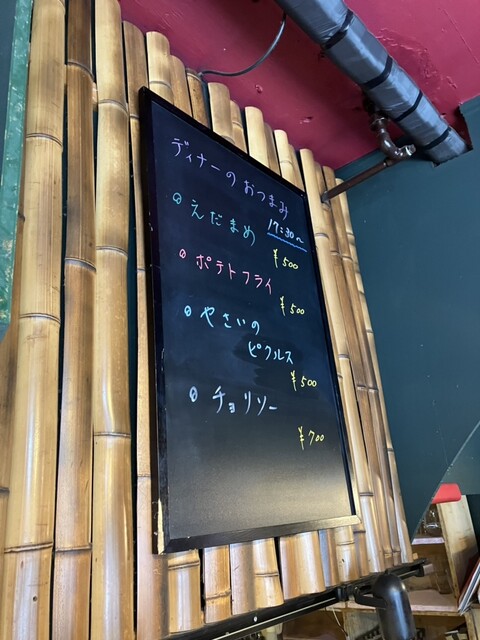 ディナーのおつまみ
17:30~
◎ えだまめ
¥500
◎ ポテトフライ
¥500
◎ やさいの
ピクルス
¥500
◎ チョリソー
¥700